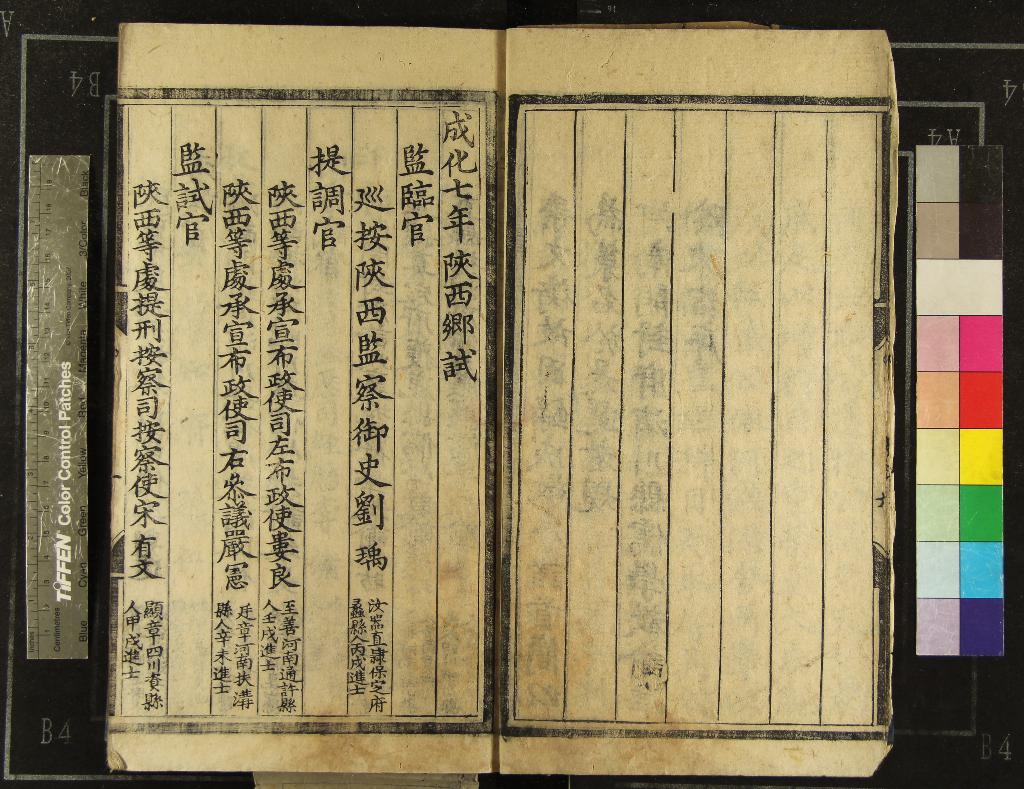 成化七年陝西鄉試
監臨官
巡按陝西監察御史劉瑀 汝器直隸保定府
蠡縣人丙戌進士
提調官
陝西等處承宣布政使司左布政使婁良 至善河南通許縣
人壬戌進士
陝西等處承宣布政使司右叅議嚴憲 廷章河南扶溝
縣人辛未進士
監試官
陝西等處提刑按察司按察使宋有文 顯章四川資縣
人甲戌進士
TIFFEN Color Control Patches
Blue Cyan Green Yellow Red Magenta White 3/Color Black
Centimetres
Inches
B4
A4
B4
B4